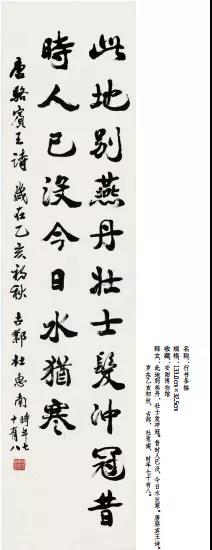 此地别燕丹壮士髮冲冠昔
時人已没今日水猶寒
唐駱賓王詩 歲在乙亥初秋 古鄴杜惠南時年七
十有八
名称：行书条幅
规格：131.0cm×32.5cm
收藏：安阳博物馆
释文：此地别燕丹，壮士发冲冠。昔时人已没，今日水犹寒。唐骆宾王诗。
岁在乙亥初秋，古邺，杜惠南，时年七十有八。